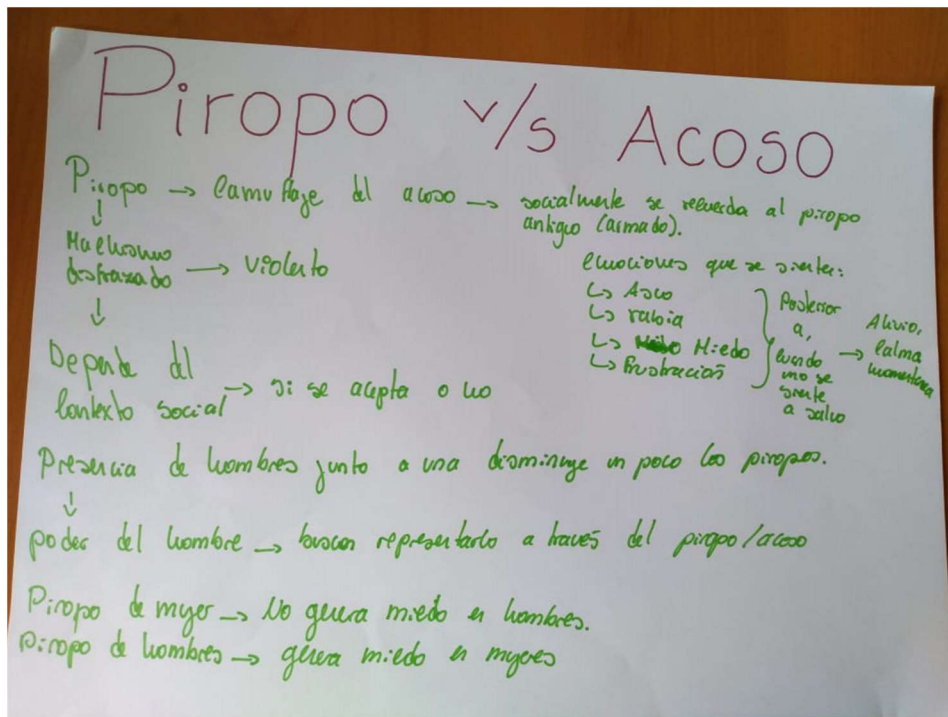 Piropo v/s Acoso
Piropo → Camuflaje del acoso → socialmente se recuerda al piropo
antiguo (armado).
↓
Machismo
disfrazado → Violento
↓
Depende del
Contexto social → si se acepta o no
emociones que se sienten:
↳ Asco
↳ rabia
↳ Miedo
↳ Frustración
Posterior
a,
cuando
uno se
siente
a salvo
→ Alivio,
Calma
momentánea
Presencia de hombres junto a una disminuye un poco los piropos.
↓
poder del hombre → buscan representarlo a través del piropo/acoso
Piropo de mujer → No genera miedo en hombres.
piropo de hombres → genera miedo en mujeres